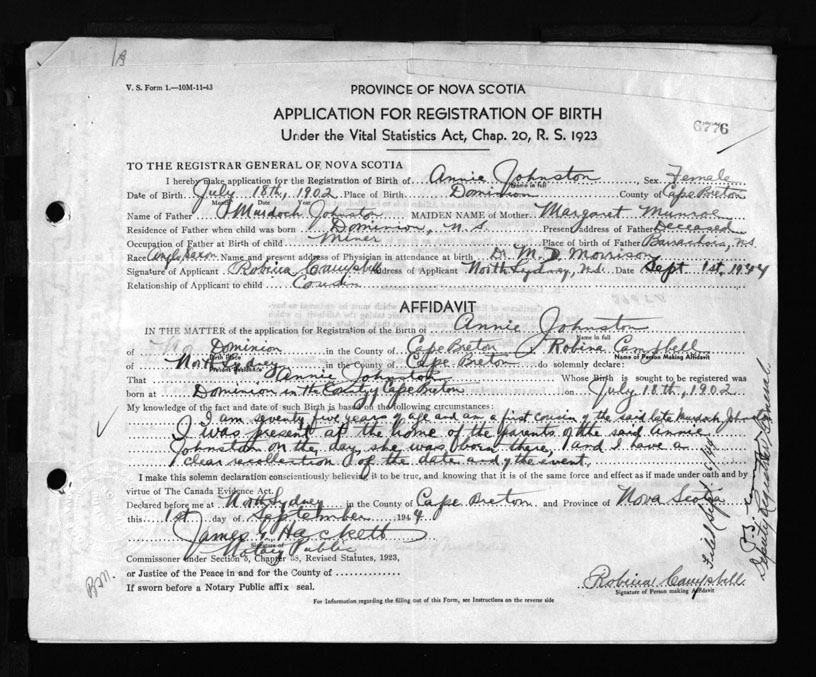 B
V. S. Form 1.—10M-11-43
PROVINCE OF NOVA SCOTIA
APPLICATION FOR REGISTRATION OF BIRTH
Under the Vital Statistics Act, Chap. 20, R. S. 1923
6776
TO THE REGISTRAR GENERAL OF NOVA SCOTIA
I hereby make application for the Registration of Birth of Annie Johnston, Sex Female
Name in full
Date of Birth July 18th, 1902 Place of Birth Dominion County of Cape Breton
Month Date Year
Name of Father Murdoch Johnston MAIDEN NAME of Mother Margaret Munroe
Residence of Father when child was born Dominion, N.S. Present Address of Father Deceased
Occupation of Father at Birth of child Miner Place of birth of Father N.S.
Race Anglo Saxon Name and present address of Physician in attendance at birth Dr. M. D. Morrison
Signature of Applicant Robina Campbell Address of Applicant North Sydney, N.S. Date Sept 1st, 1944
Relationship of Applicant to child Cousin
AFFIDAVIT
IN THE MATTER of the application for Registration of the Birth of Annie Johnston
Name in full
of Dominion in the County of Cape Breton I, Robina Campbell
Birth Place Name of Person Making Affidavit
of North Sydney in the County of Cape Breton do solemnly declare:
Present Residence
That Annie Johnston Whose Birth is sought to be registered was
born at Dominion in the County Cape Breton on July 18th, 1902
My knowledge of the fact and date of such Birth is based on the following circumstances:
I am seventy five years of age and am a first cousin of the said late Murdoch Johnston
I was present at the home of the parents of the said Annie
Johnston on the day she was born there, and I have a
clear recollection of the date and of the event.
I make this solemn declaration conscientiously believing it to be true, and knowing that it is of the same force and effect as if made under oath and by
virtue of The Canada Evidence Act.
Declared before me at North Sydney in the County of Cape Breton and Province of Nova Scotia
this 1st day of September 1944
James G. Hackett
Signature of
Notary Public
Commissioner under Section 5, Chapter 38, Revised Statutes, 1923,
or Justice of the Peace in and for the County of
If sworn before a Notary Public affix seal.
Robina Campbell
Signature of Person making Affidavit
For Information regarding the filling out of this Form, see Instructions on the reverse side
Filed Sept
Deputy Registrar General
B.M.